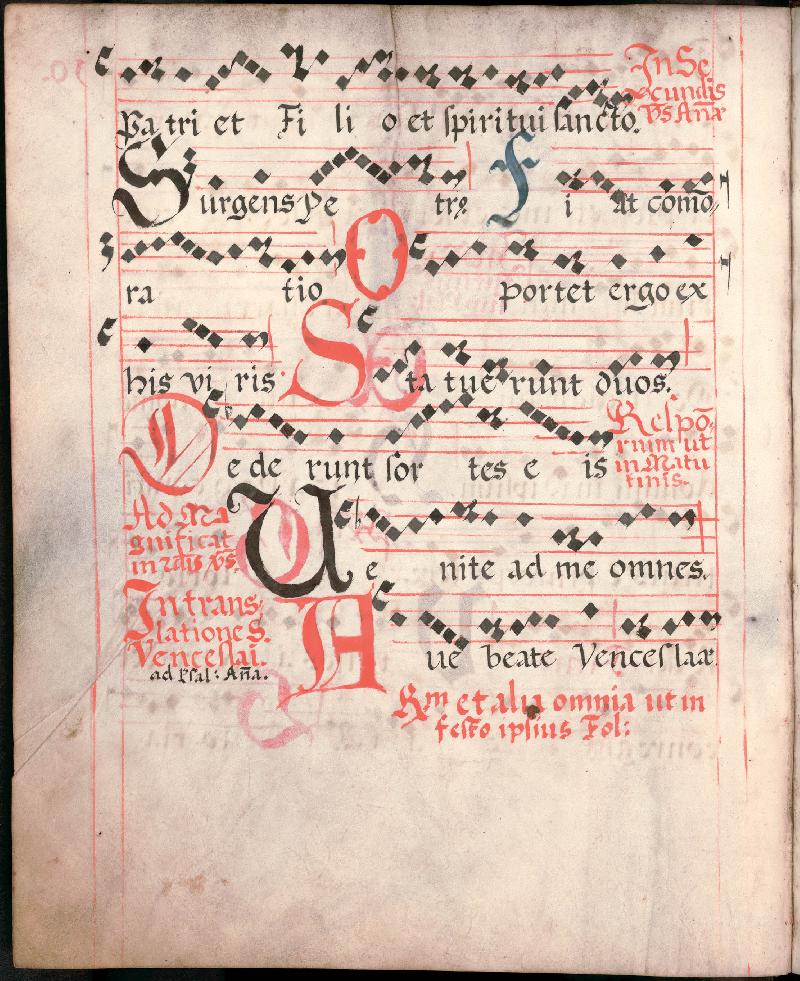 Patri et Fi li o et spiritui sancto.
In Se
cundis
Vs Anã
Surgens Pe trꝯ Fi at como
ra tio O portet ergo ex
his vi ris Sta tue runt duos.
De de runt sor tes e is
Respõ,
rium ut
in Matu
tinis.
Ad Ma
gnificat
in 2dis vs.
Ue nite ad me omnes.
In trans,
latione S.
Venceslai.
ad Psal: Aña.
Aue beate Venceslaæ
Rm et alia omnia ut in
festo ipsius Fol: